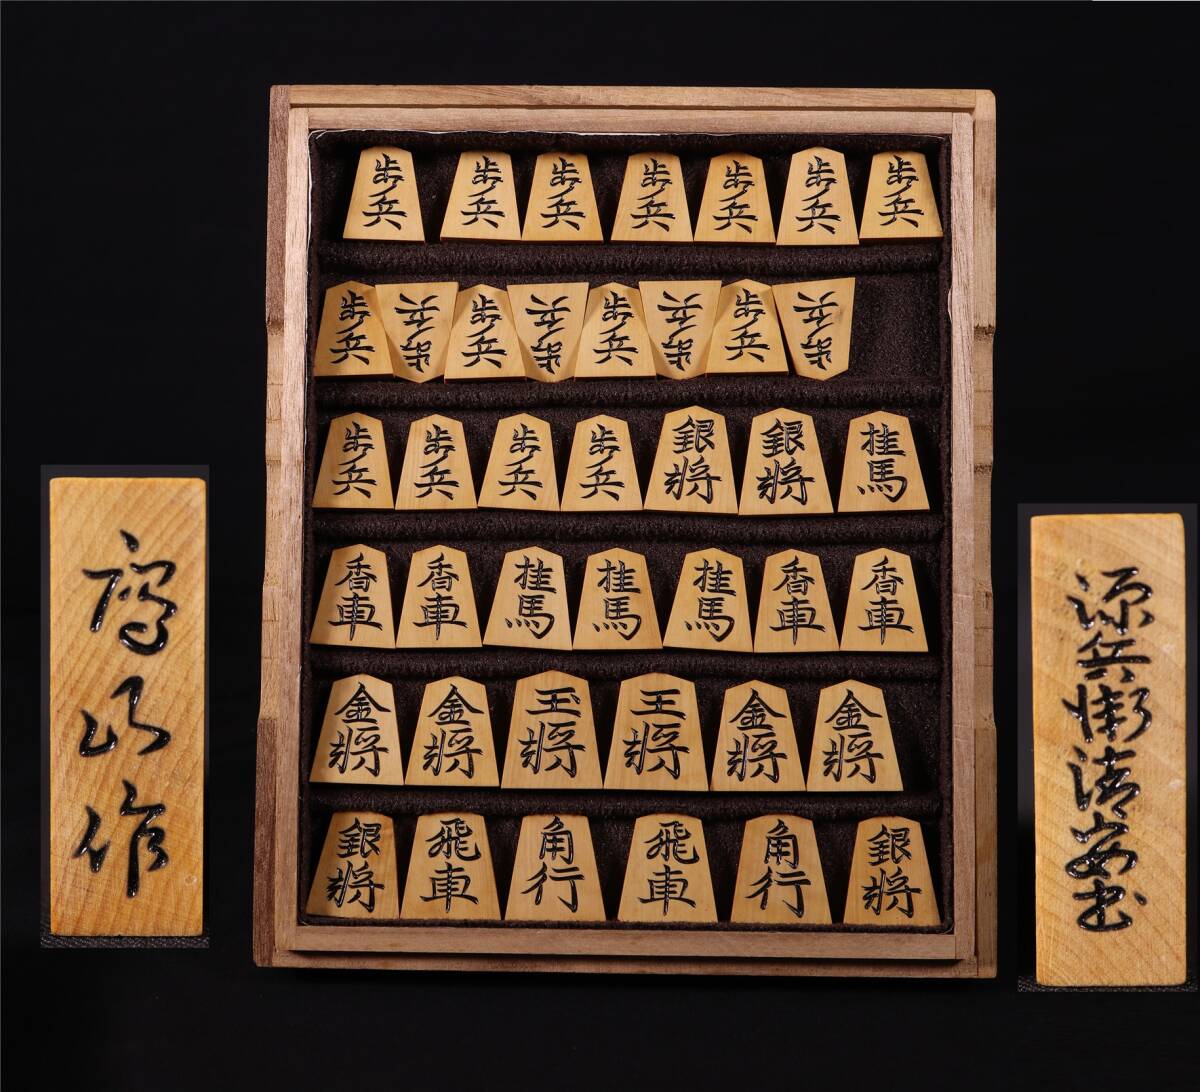 歩兵 歩兵 歩兵 歩兵 歩兵 歩兵 歩兵
歩兵 歩兵 歩兵 歩兵 歩兵 歩兵 歩兵 歩兵
歩兵 歩兵 歩兵 歩兵 銀将 銀将 桂馬
香車 香車 桂馬 桂馬 桂馬 香車 香車
金将 金将 玉将 王将 金将 金将
銀将 飛車 角行 飛車 角行 銀将
作
源兵衛清安書